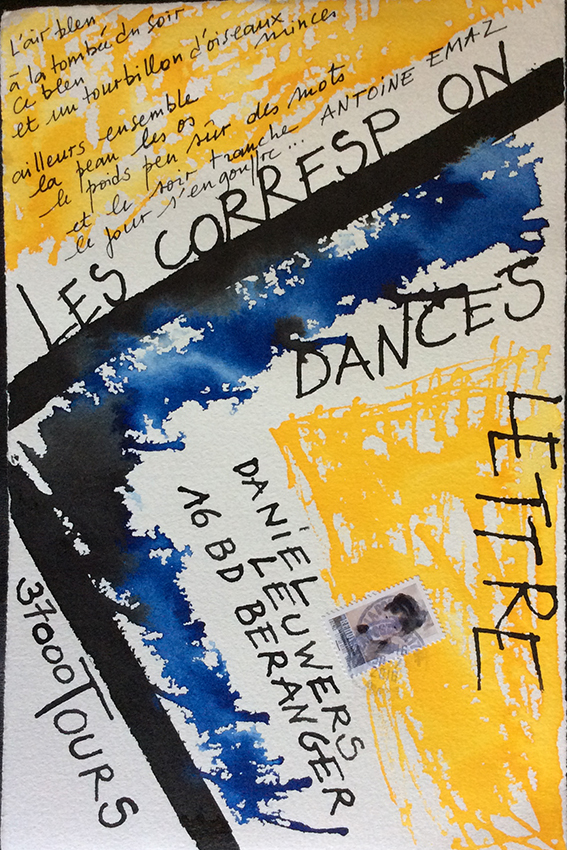 L'air bleu
à la tombée du soir
ce bleu
et un tourbillon d'oiseaux
minces
ailleurs ensemble
la peau les os
le poids peu sûr des mots
et le soir tranche
le jour s'engouffre... ANTOINE EMAZ
LES CORRESP ON
DANCES
LETTRE
DANIEL
LEUWERS
16 BD BERANGER
37000 TOURS